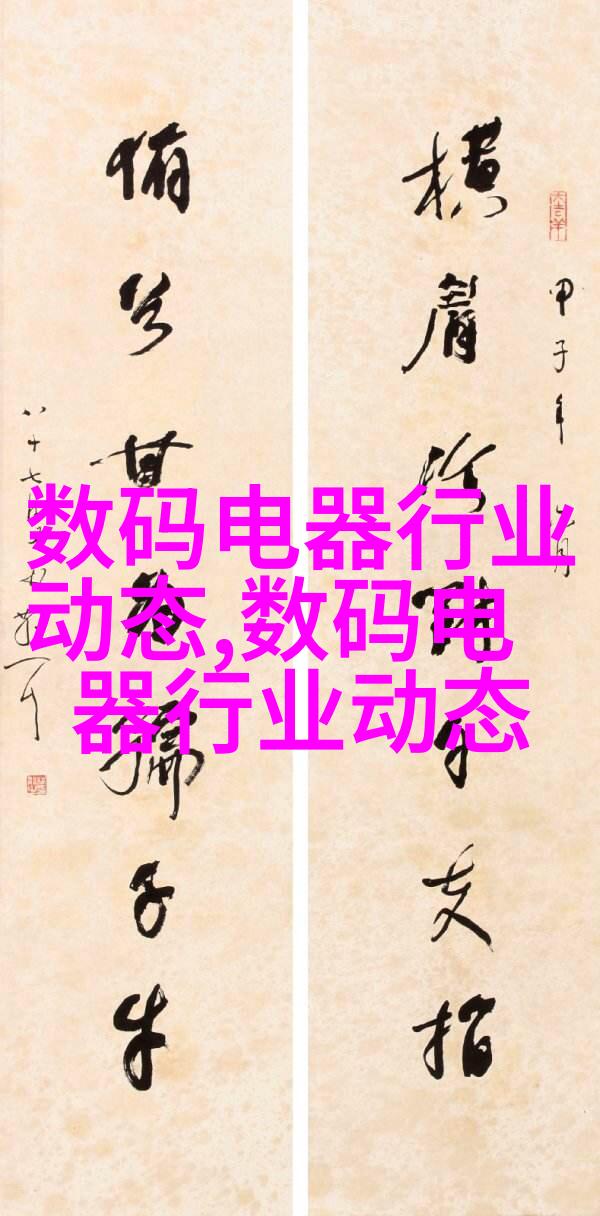 橫眉冷對千夫指
甲子年
俯首甘為孺子牛
八十七
数码电器行业
动态,数码电
器行业动态